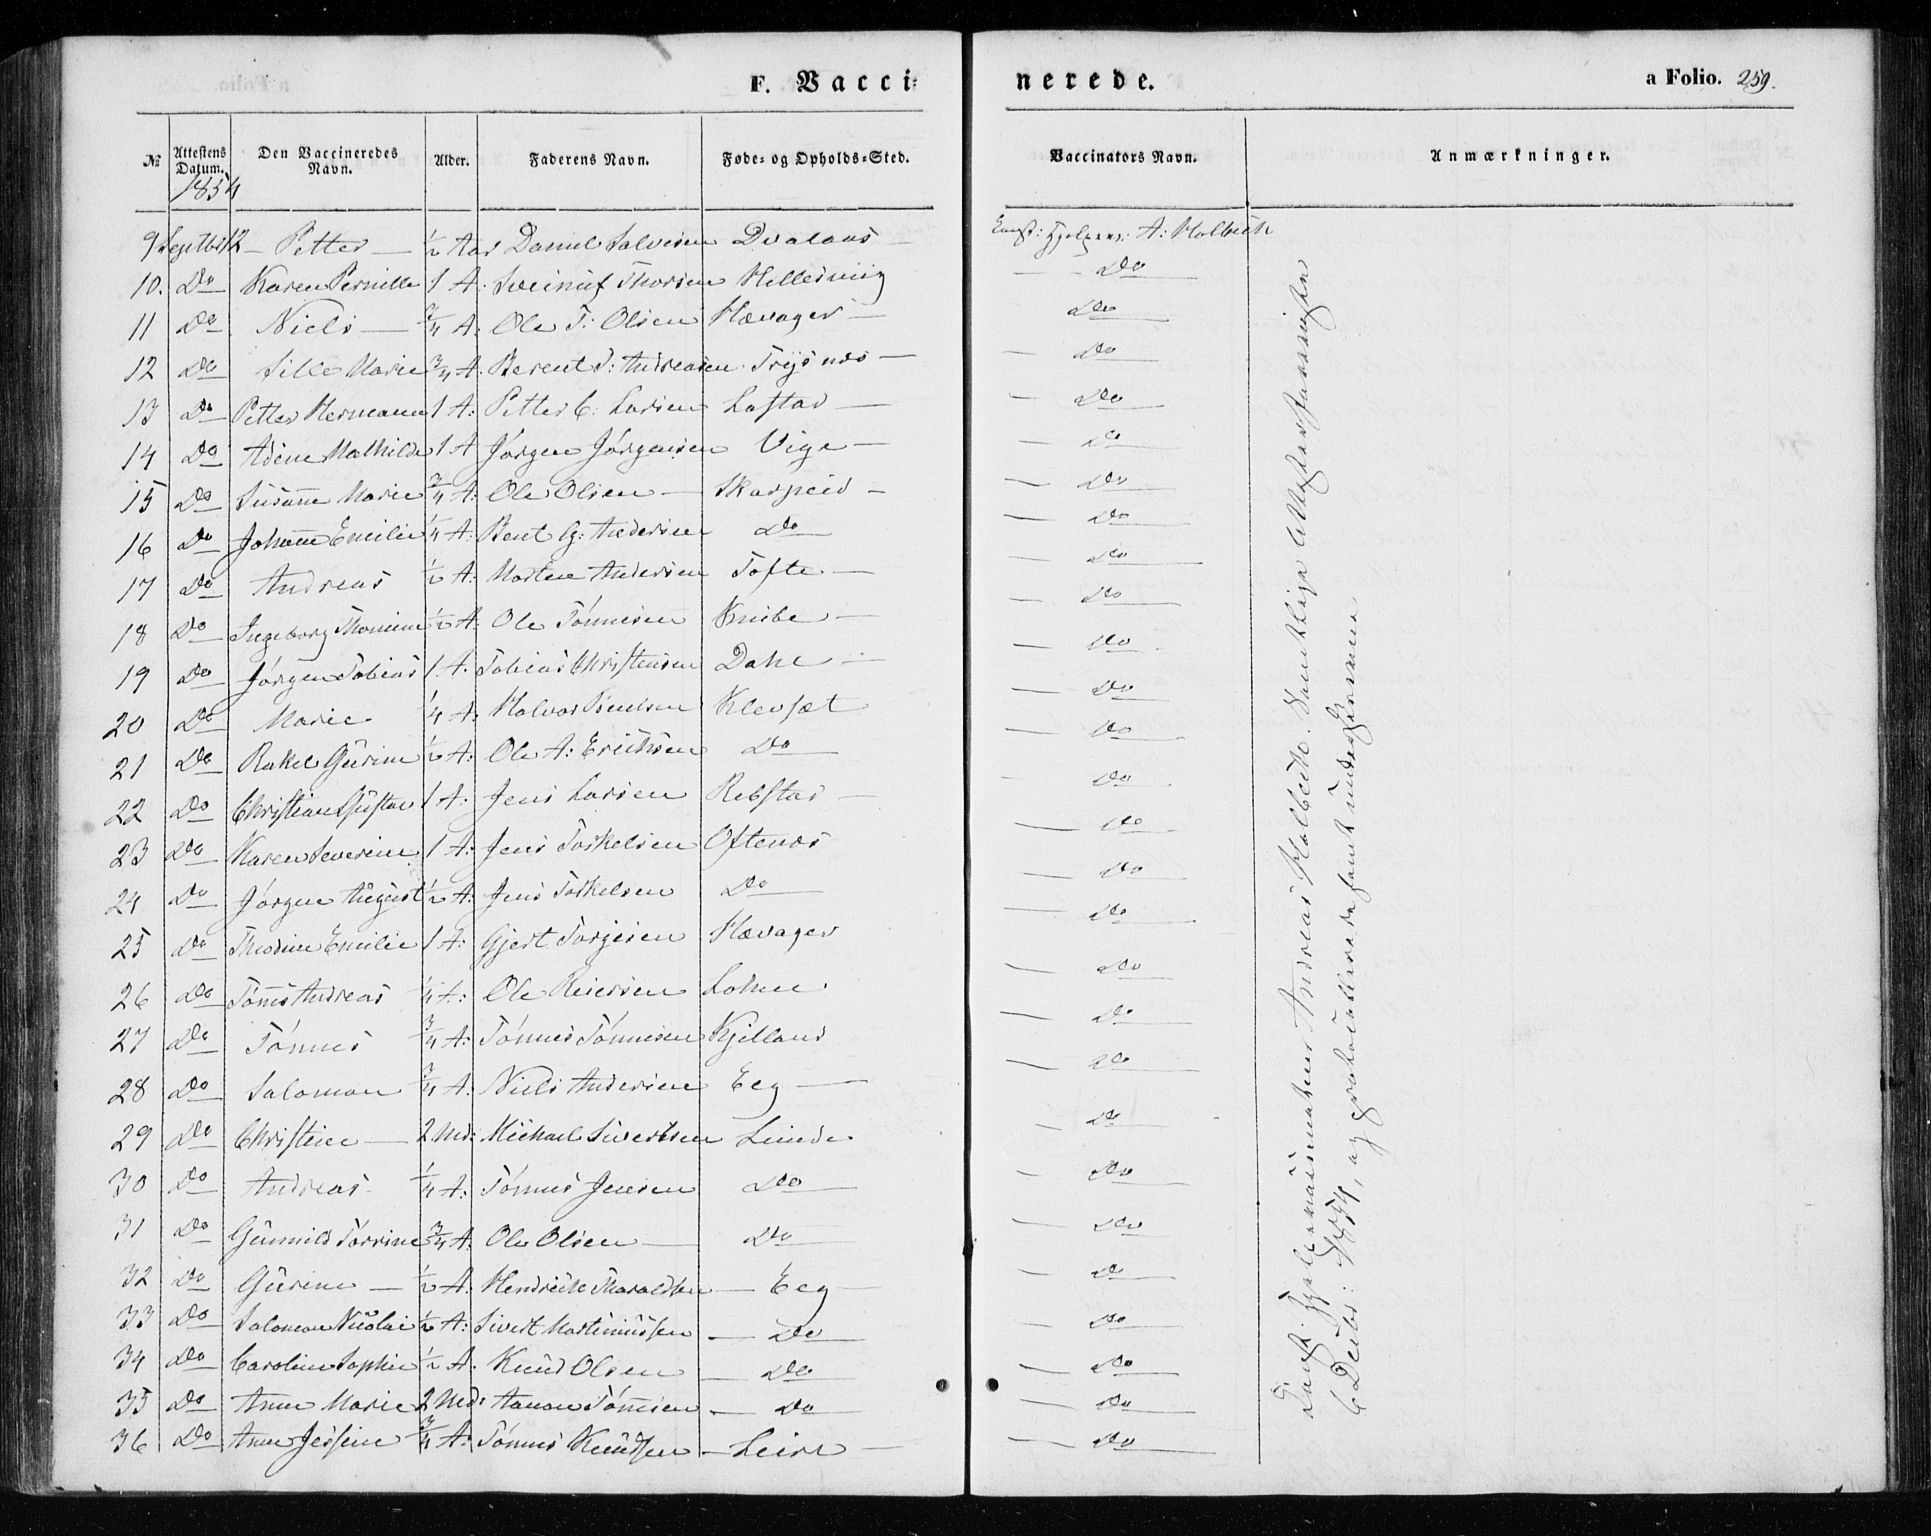 F. Vacci-
nerede.
a Folio. 259.
№ Attestens Datum. Den Vaccineredes Navn. Alder. Faderens Navn. Føde- og Opholds-Sted. Vaccinators Navn. Anmærkninger.
1854
9 Septbr 12 – Petter – ½ Aar Daniel Salvesen Dvalaas A: Holbeck
10. Do Karen Pernille 1 A. Thorsen Helledviig Do
11 Do Niels – ¾ A: Ole T: Olsen Hævager – Do
12 Do Sille Marie ¾ A. Berent S: Andreasen Trysnæs – Do
13 Do Petter Hermann 1 A: Petter C: Larsen Laftar – Do
14 Do Adene Mathilde 1 A Jørgen Jørgensen Vige – Do
15 Do Susanne Marie ¾ A: Ole Olsen – Skarpeid – Do
16 Do Johanne Emilie ¼ A: Bent G: Andersen Do Do
17 Do Andreas ½ A: Morten Andersen Tofte – Do
18 Do Ingeborg Thomine ½ A: Ole Tönnesen Knibe – Do
19 Do Jörgen Tobias 1 A. Tobias Christensen Dahe – Do
20 Do Marie ¼ A: Halvor Klevset Do
21 Do Rakel Gurine ½ A: Ole A: Erichsen Do Do
22 Do Christian Gustav 1 A: Jens Larsen Rebstar – Do
23 Do Karen Severine 1 A: Jens Torkelsen Oftenæs Do
24 Do Jörgen August ½ A: Jens Torkelsen Do Do
25 Do Thodine Emilie 1 A: Gjert Torgesen Hævager Do
26 Do Tönnes Andreas ¼ A: Ole Reiersen Lohne Do
27 Do Tönnes ¾ A: Tönnes Tönnesen Kjelland Do
28 Do Salomon ¾ A: Niels Andersen Eeg – Do
29 Do Christine – 2 Md: Michael Sivertsen Lunde Do
30 Do Andreas ¼ A: Tönnes Jensen Do Do
31 Do Gunnild Torrine ¾ A: Ole Olsen – Do Do
32 Do Gurine – ½ A: Hendrick Haraldsen – Eeg – Do
33 Do Salomon Nicolai ½ A: Sivert Martinussen – Do Do
34 Do Caroline Sophie ½ A. Knud Olsen Do Do
35 Do Anne Marie 2 Md: Aanon Tönnesen – Do Do
36 Do Anne Jessine ¾ A: Tönnes Knudsen – Leire – Do
Andreas Holbeck. Samtlige Attester
6 Decbr: 1854, og